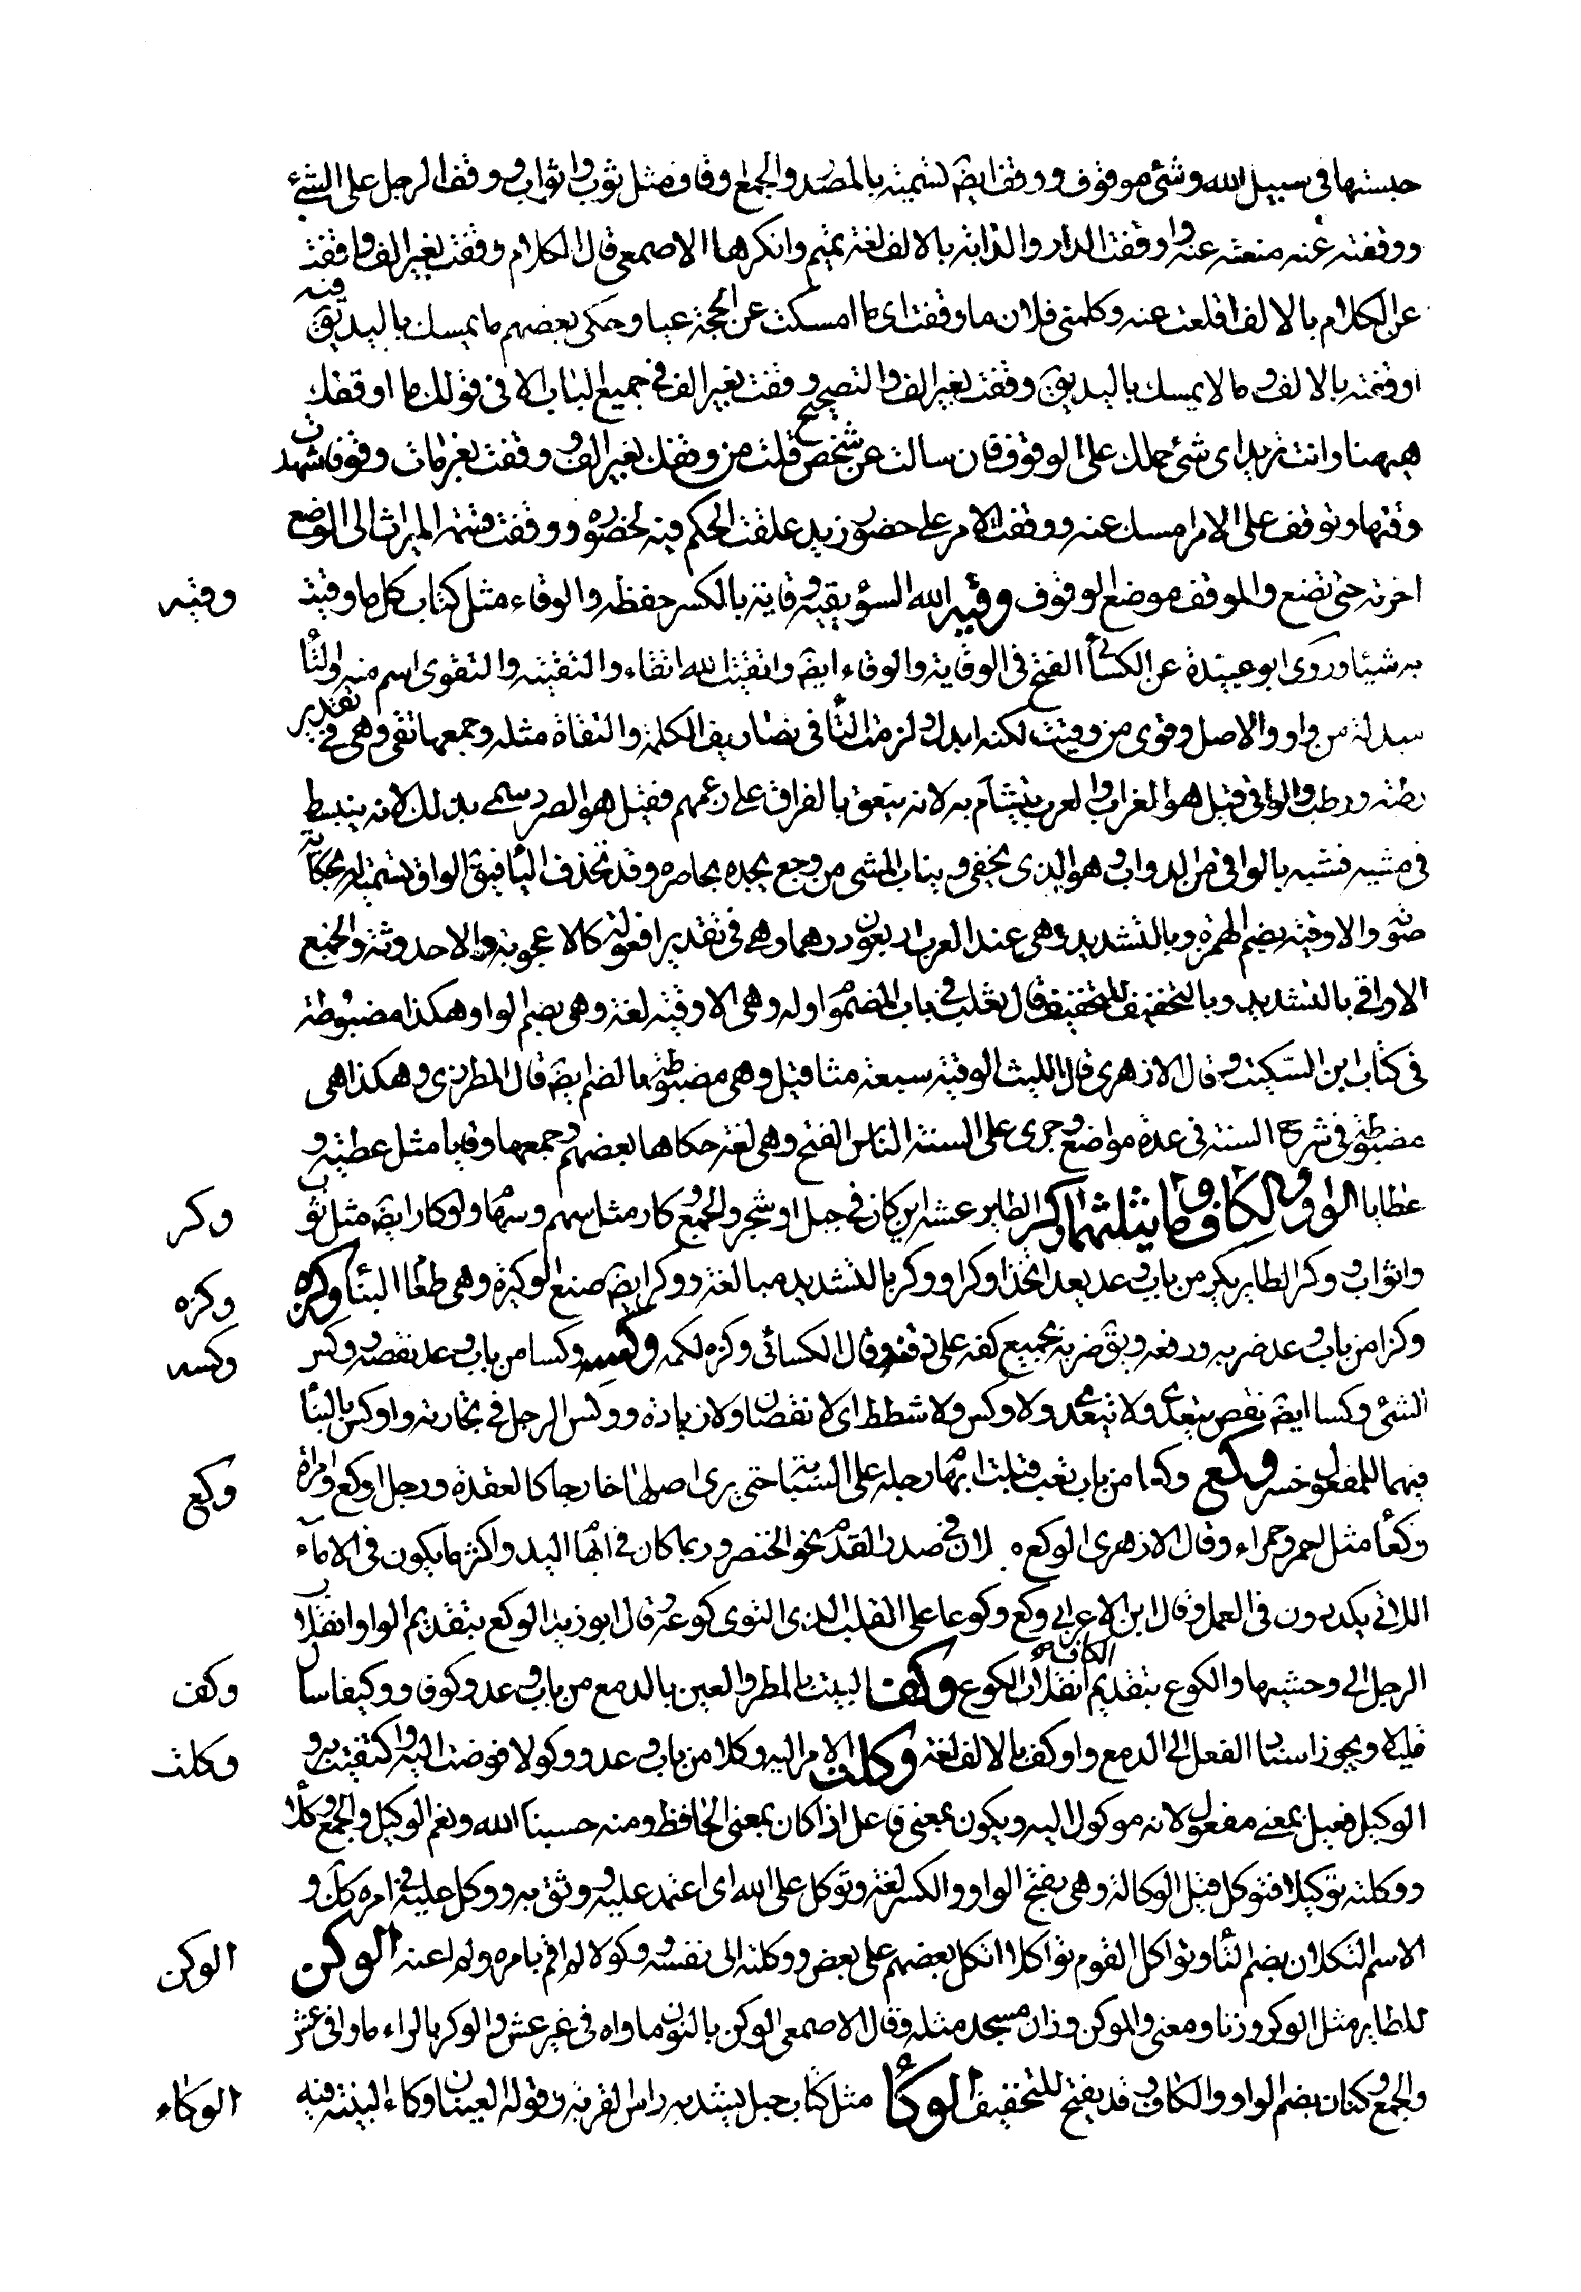 حبستها فى سبيل الله وشئ موقوف ووقف ايضا تسمية بالمصدر والجمع اوقاف مثل ثوب واثواب ووقف الرجل على الشئ
ووقفته عنه منعته عنه واوقفت الدار والدابة بالالف لغة تميم وانكرها الاصمعى قال الكلام وقفت بغير الف واقفت
عن الكلام بالالف اقلعت عنه وكلمنى فلان فما وقفت اى ما امسكت عن الحجة عيا وحكى بعضهم ما يمسك باليد يق فيه
اوقفته بالالف وما لا يمسك باليد يق وقفت بغير الف والفصيح وقفت بغير الف فى جميع الباب الا فى قولك ما اوقفك
هيهنا وانت تريد اى شئ حملك على الوقوف فان سالت عن شخص قلت من وقفك بغير الف ووقفت بعرفات وقوفا شهدت
وقتها وتوقف على الامر امسك عنه ووقفت الامر على حضور زيد علقت الحكم فيه بحضوره ووقفت قسمة الميراث الى الوضع
اخرته حتى تضع والموقف موضع الوقوف وقيه الله السوء يقيه وقاية بالكسر حفظه والوقاء مثل كتاب كل ما وقيت
وقيه
به شيئا وروى ابو عبيدة عن الكسائى الفتح فى الوقاية والوقاء ايضا واتقيت الله اتقاء والتقية والتقوى اسم منه والتاء
مبدلة من واو والاصل وقوى من وقيت لكنه ابدل ولزمت التاء فى تصاريف الكلمة والتقاة مثله وجمعها تقى وهى فى تقدير
رطبة ورطب والواقى قيل هو الغراب والعرب يتشأم به لانه ينعق بالفراق على زعمهم فقيل هو الصرد سمى بذلك لانه ينبسط
فى مشيه فشبه بالواقى من الدواب وهو الذى يحفى ويهاب المشى من وجع يجده بحافره وقد تحذف الياء فيق الواق تسمية له بحكاية
صوته والاوقية بضم الهمزة وبالتشديد وهى عند العرب اربعون درهما وهى فى تقدير افعولة كالاعجوبة والاحدوثة والجمع
الاواقى بالتشديد وبالتخفيف للتخفيف قال ثعلب فى باب المضموم اوله وهى الاوقية لغة وهى بضم الواو وهكذا مضبوطة
فى كتاب ابن السكيت وقال الازهرى قال الليث الوقية سبعة مثاقيل وهى مضبوطة بالضم ايضا قال المطرزى وهكذا هى
مضبوطة فى شرح السنة فى عدة مواضع وجرى على السنة الناس الفتح وهى لغة حكاها بعضهم وجمعها وقايا مثل عطية و
عطايا الواو والكاف وما يثلثهما وكر الطاير عشه اين كان فى جبل او شجر والجمع وكار مثل سهم وسهام واوكار ايضا مثل ثوب
وكر
واثواب ووكر الطاير يكر من باب وعد يعد اتخذ وكرا ووكر بالتشديد مبالغة ووكر ايضا صنع الوكيرة وهى طعام البناء وكزه
وكزه
وكزا من باب وعد ضربه ودفعه ويق ضربه بجميع كفه على ذقنه وقال الكسائى وكزه لكمه وكسه وكسا من باب وعد نقصه ووكس
وكسه
الشئ وكسا ايضا نقص يتعدى ولا يتعدى ولا وكس ولا شطط اى لا نقصان ولا زيادة ووكس الرجل فى تجارته واوكس بالبناء
فيهما للمفعول خسر وكع وكعا من باب تعب اقبلت ابهام رجله على السبابة حتى يرى اصلها خارجا كالعقدة ورجل اوكع وامراة
وكع
وكعاء مثل احمر وحمراء وقال الازهرى الوكع ميلان فى صدر القدم نحو الخنصر وربما كان فى ابهام اليد واكثر ما يكون فى الاماء
اللاتى يكددن فى العمل وقال ابن الاعرابى وكع وكوعا على القلب الذى التوى كوعه قال ابو زيد الوكع بتقديم الواو انقلاب
الرجل الى وحشيها والكوع بتقديم الكاف انقلاب الكوع وكف البيت بالمطر والعين بالدمع من باب وعد وكوفا ووكيفا سال
وكف
قليلا ويجوز اسناد الفعل الى الدمع واوكف بالالف لغة وكلت الامر اليه وكلا من باب وعد ووكولا فوضت اليه واكتفيت به و
وكلت
الوكيل فعيل بمعنى مفعول لانه موكول اليه ويكون بمعنى فاعل اذا كان بمعنى الحافظ ومنه حسبنا الله ونعم الوكيل والجمع وكلاء
ووكلته توكيلا فتوكل قبل الوكالة وهى بفتح الواو والكسر لغة وتوكل على الله اى اعتمد عليه ووثق به ووكل عليه فى امره كك و
الاسم التكلان بضم التاء وتواكل القوم تواكلا اتكل بعضهم على بعض ووكلته الى نفسه وكولا لم اقم بامره ولم اعنه الوكن
الوكن
للطاير مثل الوكر وزنا ومعنى والموكن وزان مسجد مثله وقال الاصمعى الوكن بالنون ماواه فى غير عش والوكر بالراء ماواه فى عش
والجمع وكنات بضم الواو والكاف وقد يفتح للتخفيف الوكاء مثل كتاب حبل يشد به راس القربة وقوله العينان وكاء السته فيه
الوكاء